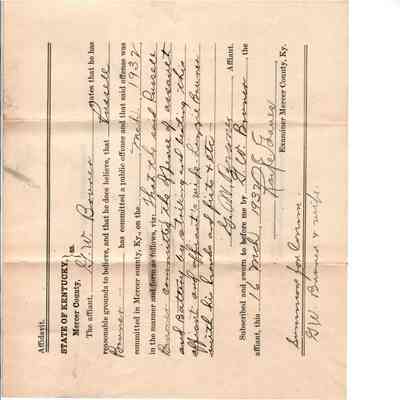 Affidavit.
STATE OF KENTUCKY, } ss.
Mercer County,
The affiant, G W Bonner states that he has
reasonable grounds to believe, and that he does believe, that Russell
Bonner has committed a public offense and that said offense was
committed in Mercer county, Ky., on the Mch 1932
in the manner and form as follows, viz: That the said Russell
Bonner committed the offense of assault
and Battery by striking and beating this
affiant and affiant's wife Bonner
with his hands and fists & etc
G. W. Bonner Affiant.
Subscribed and sworn to before me by G W Bonner the
affiant, this 16 Mch 1932
Examiner Mercer County, Ky.
Summons for Comm
G W Bonner & wife.